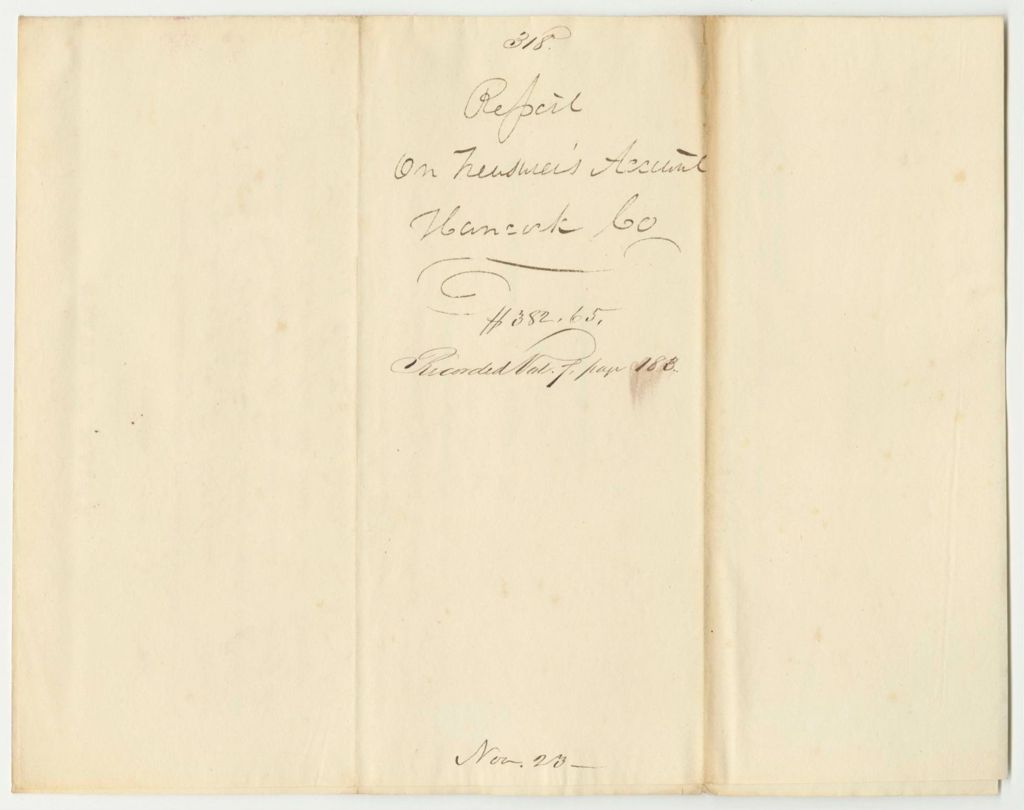 318.
Report
On Treasurer's Account
Hancock Co
$382.65.
Recorded Vol. 7. page 183.
Nov. 23—